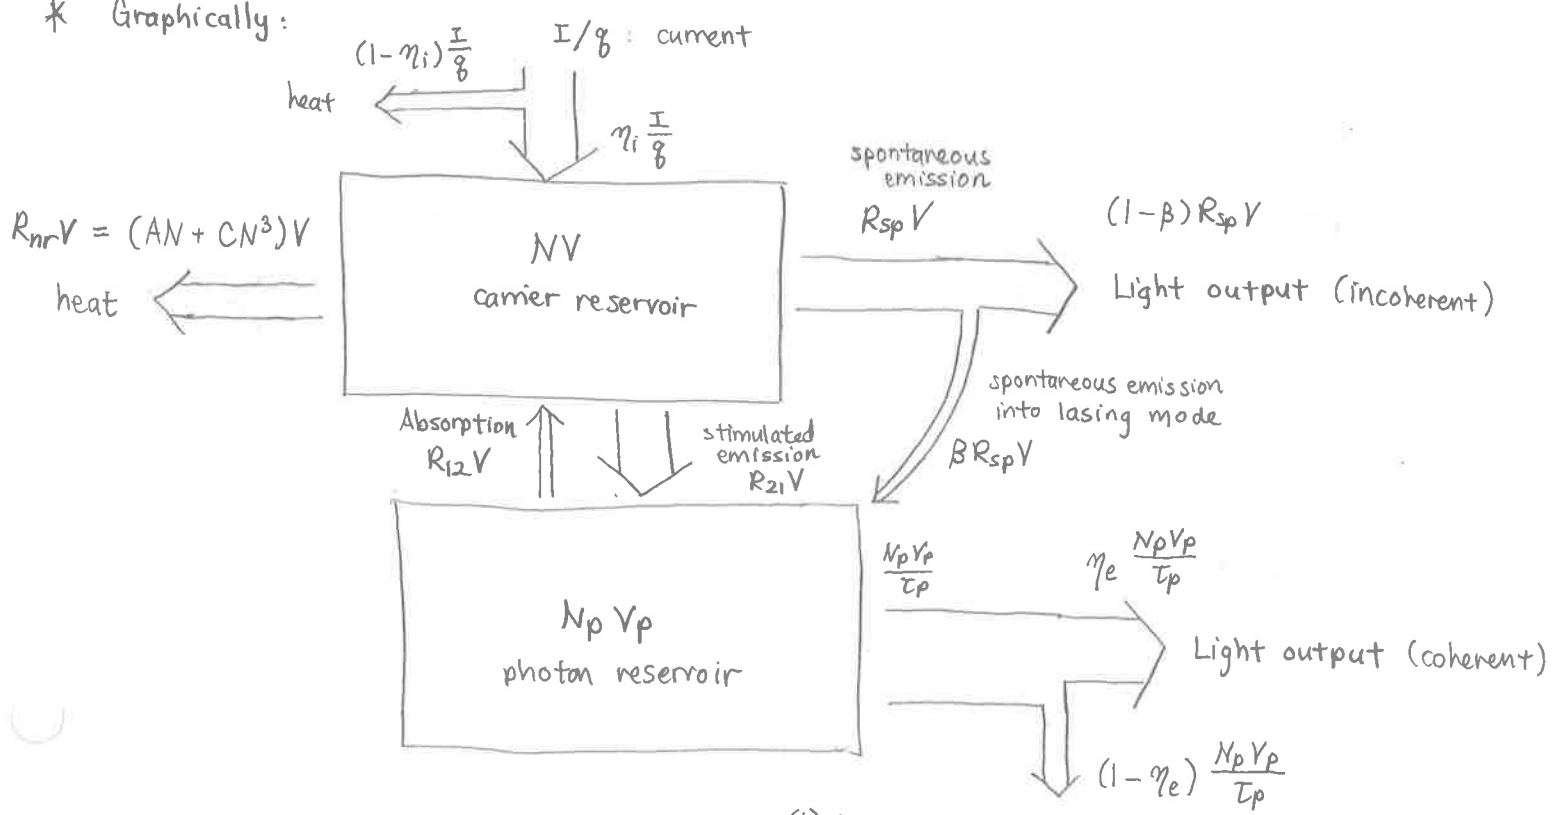 * Graphically:
(1-ηi) I/q
I/q : current
heat
ηi I/q
spontaneous
emission
RspV
(1-β)RspV
RnrV = (AN + CN³)V
NV
heat
carrier reservoir
Light output (incoherent)
spontaneous emission
into lasing mode
βRspV
Absorption
R12V
stimulated
emission
R21V
NpVp/τp
ηe NpVp/τp
NpVp
photon reservoir
Light output (coherent)
(1-ηe) NpVp/τp